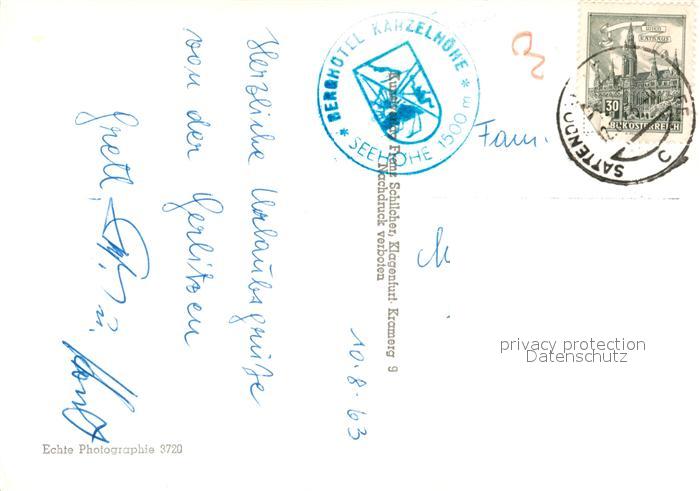 Herzliche Urlaubsgrüße
von der Gerlitzen
Gretl,
u. Horst
10.8.63
★ BERGHOTEL KANZELHÖHE ★
SEEHÖHE 1500 m
Franz Schilcher, Klagenfurt, Kramerg 9
Nachdruck verboten
Fam.
WIEN
RATHAUS
30
REPUBLIK ÖSTERREICH
SATTENDO
3
privacy protection
Datenschutz
Echte Photographie 3720